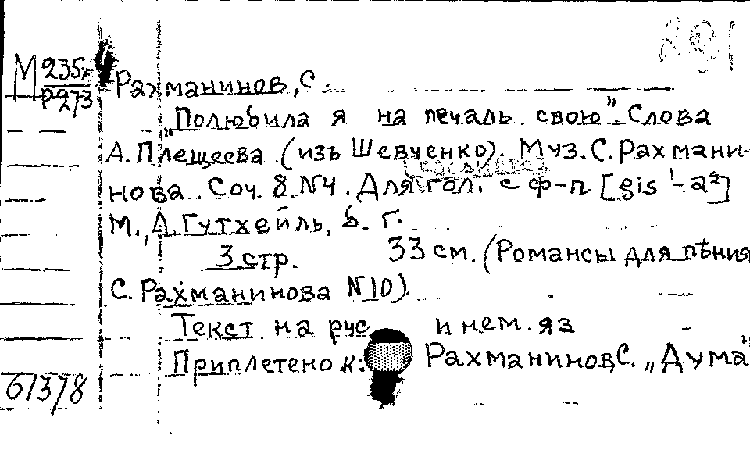 291
М 235
Р 273
Рахманинов, С.
"Полюбила я на печаль свою". Слова
А. Плещеева (изъ Шевченко). Муз. С. Рахмани-
нова. Соч. 8. N4. Для гол. с ф-п [gis¹-a²]
М., А. Гутхейль, б. г.
3 стр. 33 см. (Романсы для пѣния
С. Рахманинова N 10)
Текст на рус и нем. яз
Приплетено к: Рахманинов С. „Дума"
61378